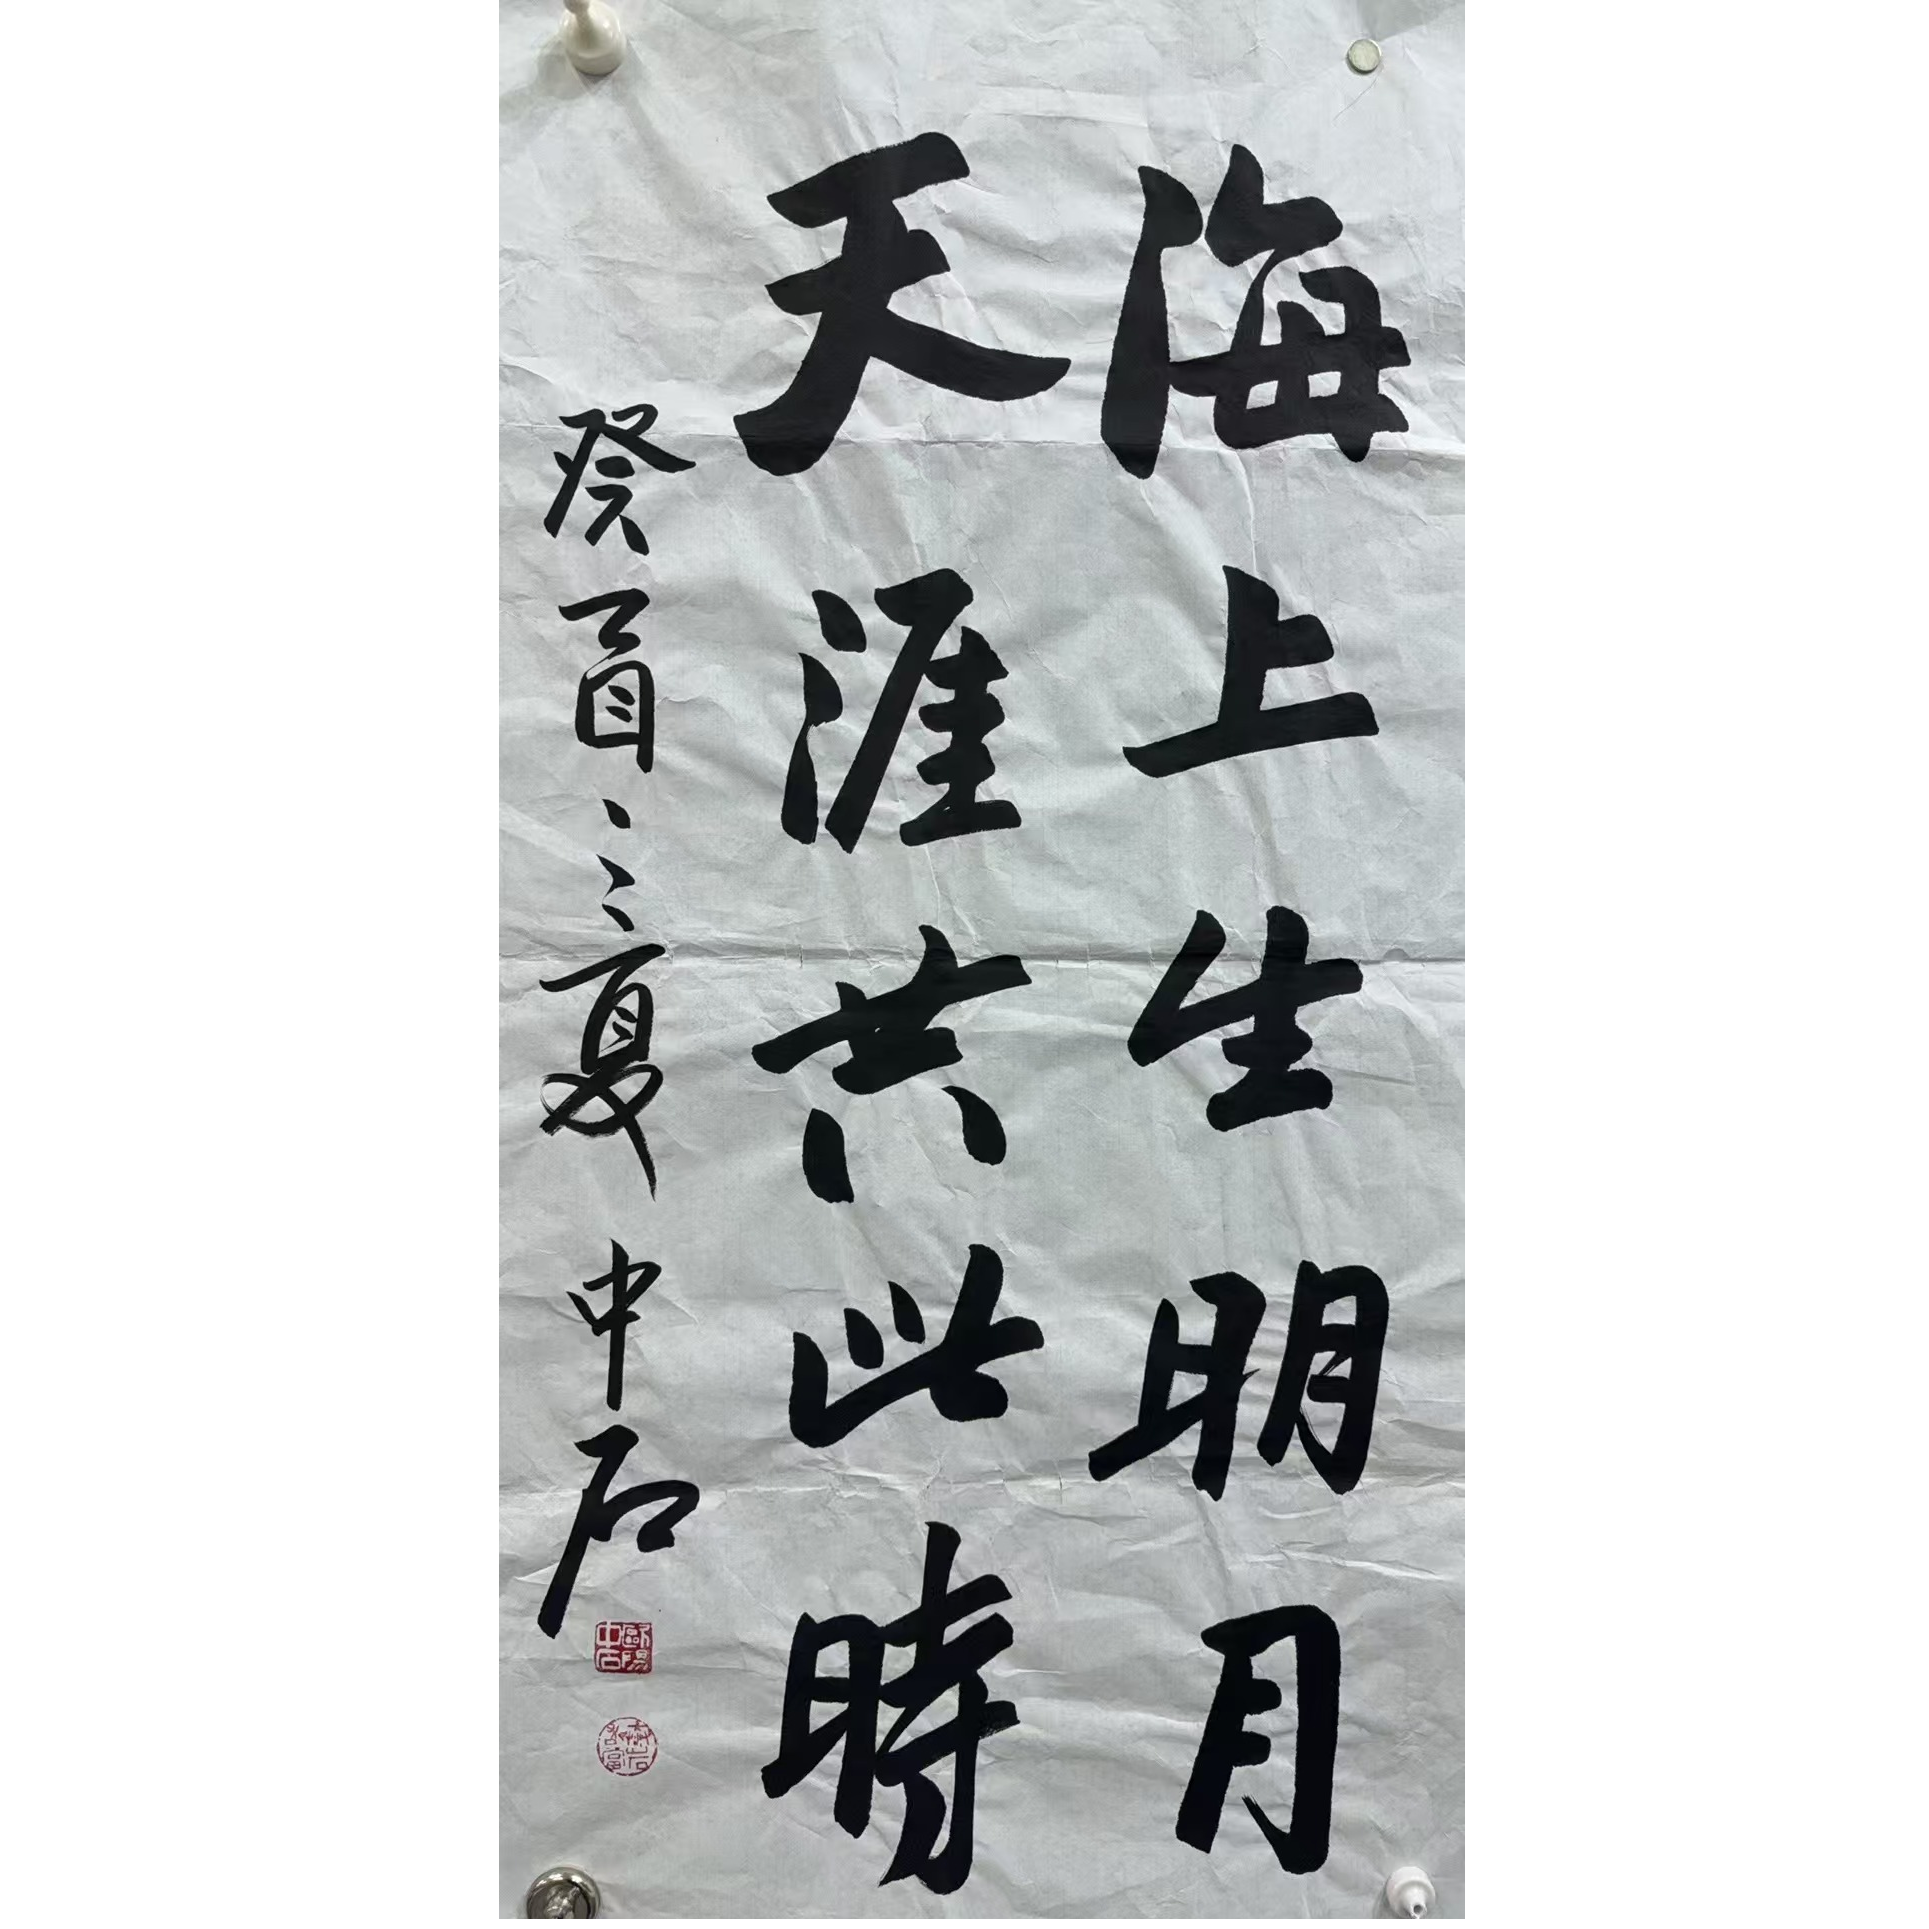 海上生明月
天涯共此時
癸酉之夏 中石
歐陽中石